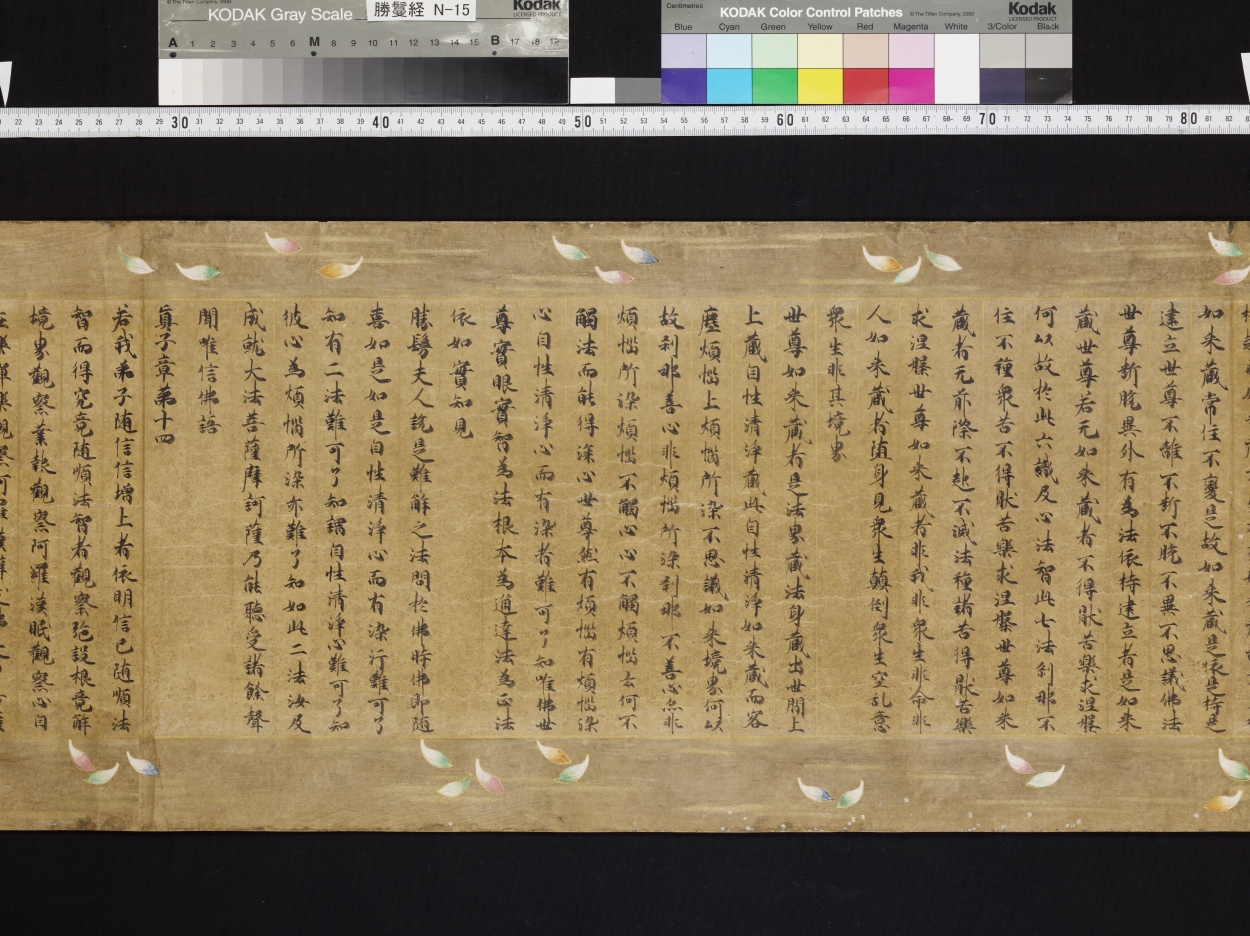 © The Tiffen Company, 2000
KODAK Gray Scale
勝鬘経 N-15
Kodak
LICENSED PRODUCT
A 1 2 3 4 5 6 M 8 9 10 11 12 13 14 15 B 17 18 19
Centimetres
KODAK Color Control Patches
© The Tiffen Company, 2000
Kodak
LICENSED PRODUCT
Blue Cyan Green Yellow Red Magenta White 3/Color Black
22 23 24 25 26 27 28 29 30 31 32 33 34 35 36 37 38 39 40 41 42 43 44 45 46 47 48 49 50 51 52 53 54 55 56 57 58 59 60 61 62 63 64 65 66 67 68 69 70 71 72 73 74 75 76 77 78 79 80 81 82
如来蔵常住不變是故如来蔵是依是持是
建立世尊不離不斷不脫不異不思議佛法
世尊斷脫異外有為法依持建立者是如来
蔵世尊若无如来蔵者不得猒苦樂求涅槃
何以故於此六識及心法智此七法刹那不
住不種衆苦不得猒苦樂求涅槃世尊如来
蔵者无前際不起不滅法種諸苦得猒苦樂
求涅槃世尊如来蔵者非我非衆生非命非
人如来蔵者随身見衆生顛倒衆生空乱意
衆生非其境界
世尊如来蔵者是法界蔵法身蔵出世間上
上蔵自性清淨蔵此自性清淨如来蔵而客
塵煩惱上煩惱所染不思議如来境界何以
故刹那善心非煩惱所染刹那不善心亦非
煩惱所染煩惱不觸心心不觸煩惱云何不
觸法而能得染心世尊然有煩惱有煩惱染
心自性清淨心而有染者難可了知唯佛世
尊實眼實智為法根本為通達法為正法
依如實知見
勝鬘夫人說是難解之法問於佛時佛即随
喜如是如是自性清淨心而有染汙難可了
知有二法難可了知謂自性清淨心難可了知
彼心為煩惱所染亦難了知如此二法汝及
成就大法菩薩摩訶薩乃能聽受諸餘聲
聞唯信佛語
真子章第十四
若我弟子随信信增上者依明信已随順法
智而得究竟随順法智者觀察施設根意解
境界觀察業報觀察阿羅漢眠觀察心自